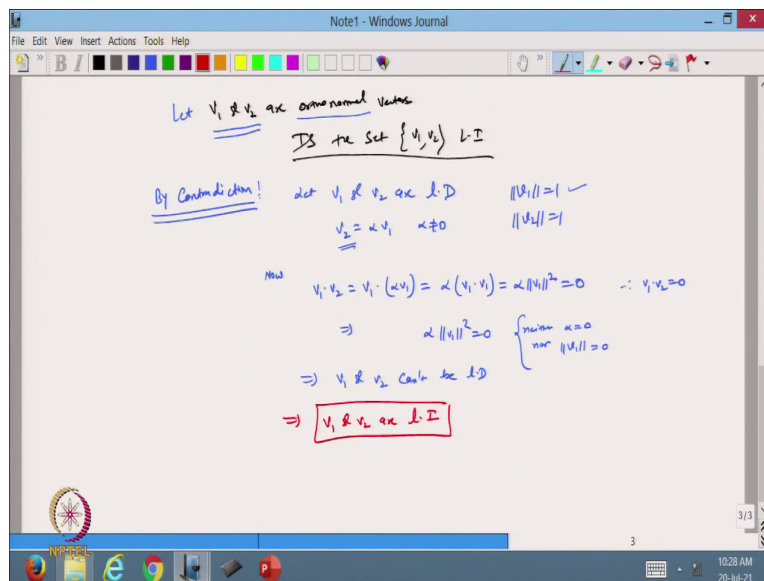 Note1 - Windows Journal
File Edit View Insert Actions Tools Help
B I
Let v₁ & v₂ are orthonormal vectors
IS the set {v₁, v₂} L.I
By Contradiction! Let v₁ & v₂ are l.D ||v₁||=1 ✓
v₂ = α v₁ α≠0 ||v₂||=1
Now v₁·v₂ = v₁·(αv₁) = α(v₁·v₁) = α||v₁||² = 0 ∵ v₁·v₂=0
⇒ α||v₁||² = 0 { neither α=0
nor ||v₁||=0
⇒ v₁ & v₂ can't be l.D
⇒ v₁ & v₂ are l.I
NPTEL
3/3
3
10:28 AM
20-Jul-21